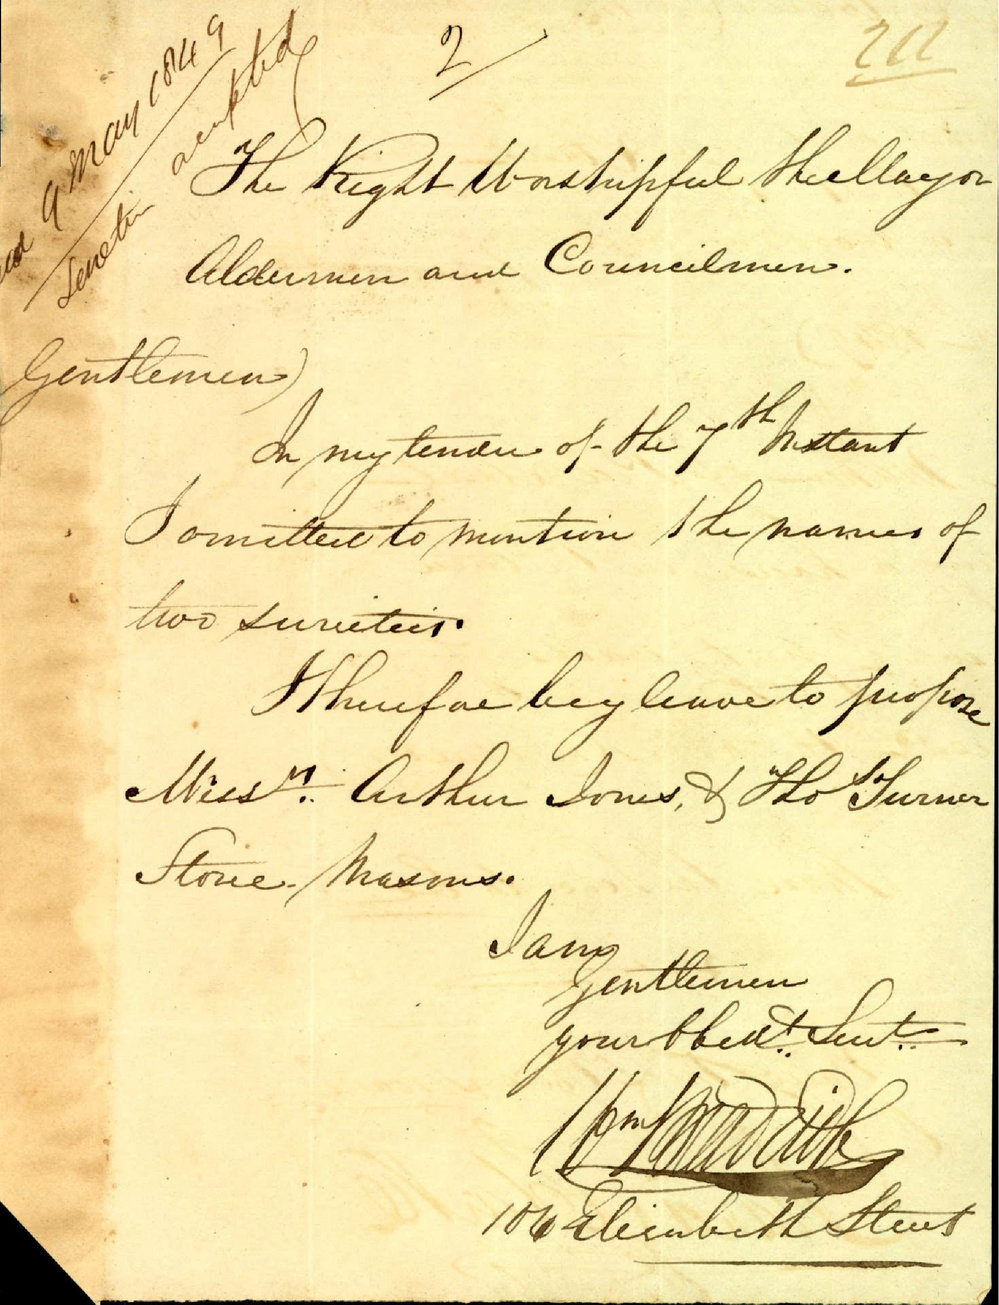 2
211
9 May 1849
accepted
The Right Worshipful the Mayor
Aldermen and Councilmen.
Gentlemen)
In my tender of the 7th Instant
I omitted to mention the names of
two sureties.
I therefore beg leave to propose
Messrs. Arthur Jones, & Thos Turner
Stone-Masons.
I am
Gentlemen
your Obedt. Sevt.
Wm
106 Elizabeth Street